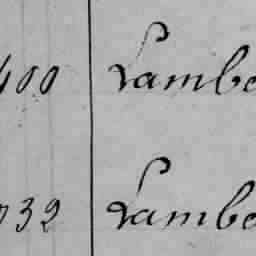 400 Lambe
32 Lambe